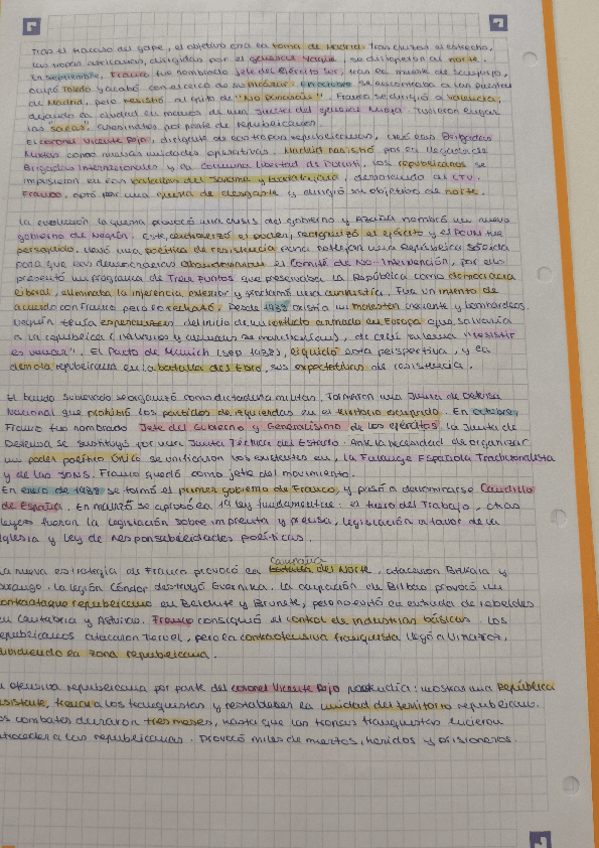 Tras el fracaso del golpe, el objetivo era la toma de Madrid. Tras cruzar el estrecho,
las tropas africanas, dirigidas por el general Yagüe, se dispusieron al norte.
En septiembre, Franco fue nombrado jefe del Ejército Sur, tras la muerte de Sanjurjo,
ocupó Toledo y acabó con el cerco de su Alcázar. En octubre se aproximaba a las puertas
de Madrid, pero resistió al grito de "No pasarán". Franco se dirigió a Valencia,
dejando la ciudad en manos de una Junta del general Miaja. Tuvieron lugar
las "sacas", asesinatos por parte de republicanos.
El coronel Vicente Rojo, dirigente de las tropas republicanas, creó las Brigadas
Mixtas como nuevas unidades operativas. Madrid resistió por la llegada de
Brigadas Internacionales y la Columna Libertad de Durruti, los republicanos se
impusieron en las batallas del Jarama y Guadalajara, derrotando al CTV.
Franco, optó por una guerra de desgaste y dirigió su objetivo de norte.
La evolución la guerra provocó una crisis del gobierno y Azaña nombró un nuevo
gobierno de Negrín. Este, centralizó el poder, reorganizó el ejército y el POUM fue
perseguido. Llevó una política de resistencia para reflejar una República sólida
para que las democracias abandonaran el Comité de No-Intervención, por ello
presentó un programa de Trece Puntos que presentaba la República como democracia
liberal, eliminaba la inferencia exterior y proclamó una amnistía. Fue un intento de
acuerdo con Franco pero lo rechazó. Desde 1938 existía un malestar creciente y bombardeos.
Negrín tenía esperanzas del inicio de un conflicto armado en Europa que salvaría
a la república, de ahí su lema "resistir
es vencer". El Pacto de Munich (sep 1938), liquidó esta perspectiva, y la
derrota republicana en la batalla del Ebro, sus expectativas de resistencia.
El bando sublevado se organizó como dictadura militar. Formaron una Junta de Defensa
Nacional que prohibió los partidos de izquierdas en el territorio ocupado. En octubre,
Franco fue nombrado Jefe del Gobierno y Generalísimo de los ejércitos. La Junta de
Defensa se sustituyó por una Junta Técnica del Estado. Ante la necesidad de organizar
un poder político único se unificaron los existentes en, la Falange Española Tradicionalista
y de las JONS. Franco quedó como jefe del movimiento.
En enero de 1938 se formó el primer gobierno de Franco, y pasó a denominarse Caudillo
de España. En marzo se aprobó la 1ª ley fundamental: el Fuero del Trabajo, otras
leyes fueron la legislación sobre imprenta y prensa, legislación a favor de la
Iglesia y Ley de Responsabilidades políticas.
La nueva estrategia de Franco provocó la campaña del Norte. Atacaron Bizkaia y
Durango. La legión Cóndor destruyó Guernika. La ocupación de Bilbao provocó un
contraataque republicano en Belchite y Brunete, pero no evitó la entrada de rebeldes
en Cantabria y Asturias. Franco consiguió el control de industrias básicas. Los
republicanos atacaron Teruel, pero la contraofensiva franquista llegó a Vinaròz,
dividiendo la zona republicana.
La ofensiva republicana por parte del coronel Vicente Rojo pretendía: mostrar una República
resistente, frenar a los franquistas y restablecer la unidad del territorio republicano.
Los combates duraron tres meses, hasta que las tropas franquistas hicieron
retroceder a las republicanas. Provocó miles de muertos, heridos y prisioneros.